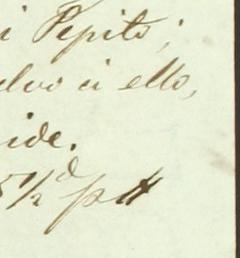 i Pepito;
elvo á ello,
ide.
5 1/2 d p